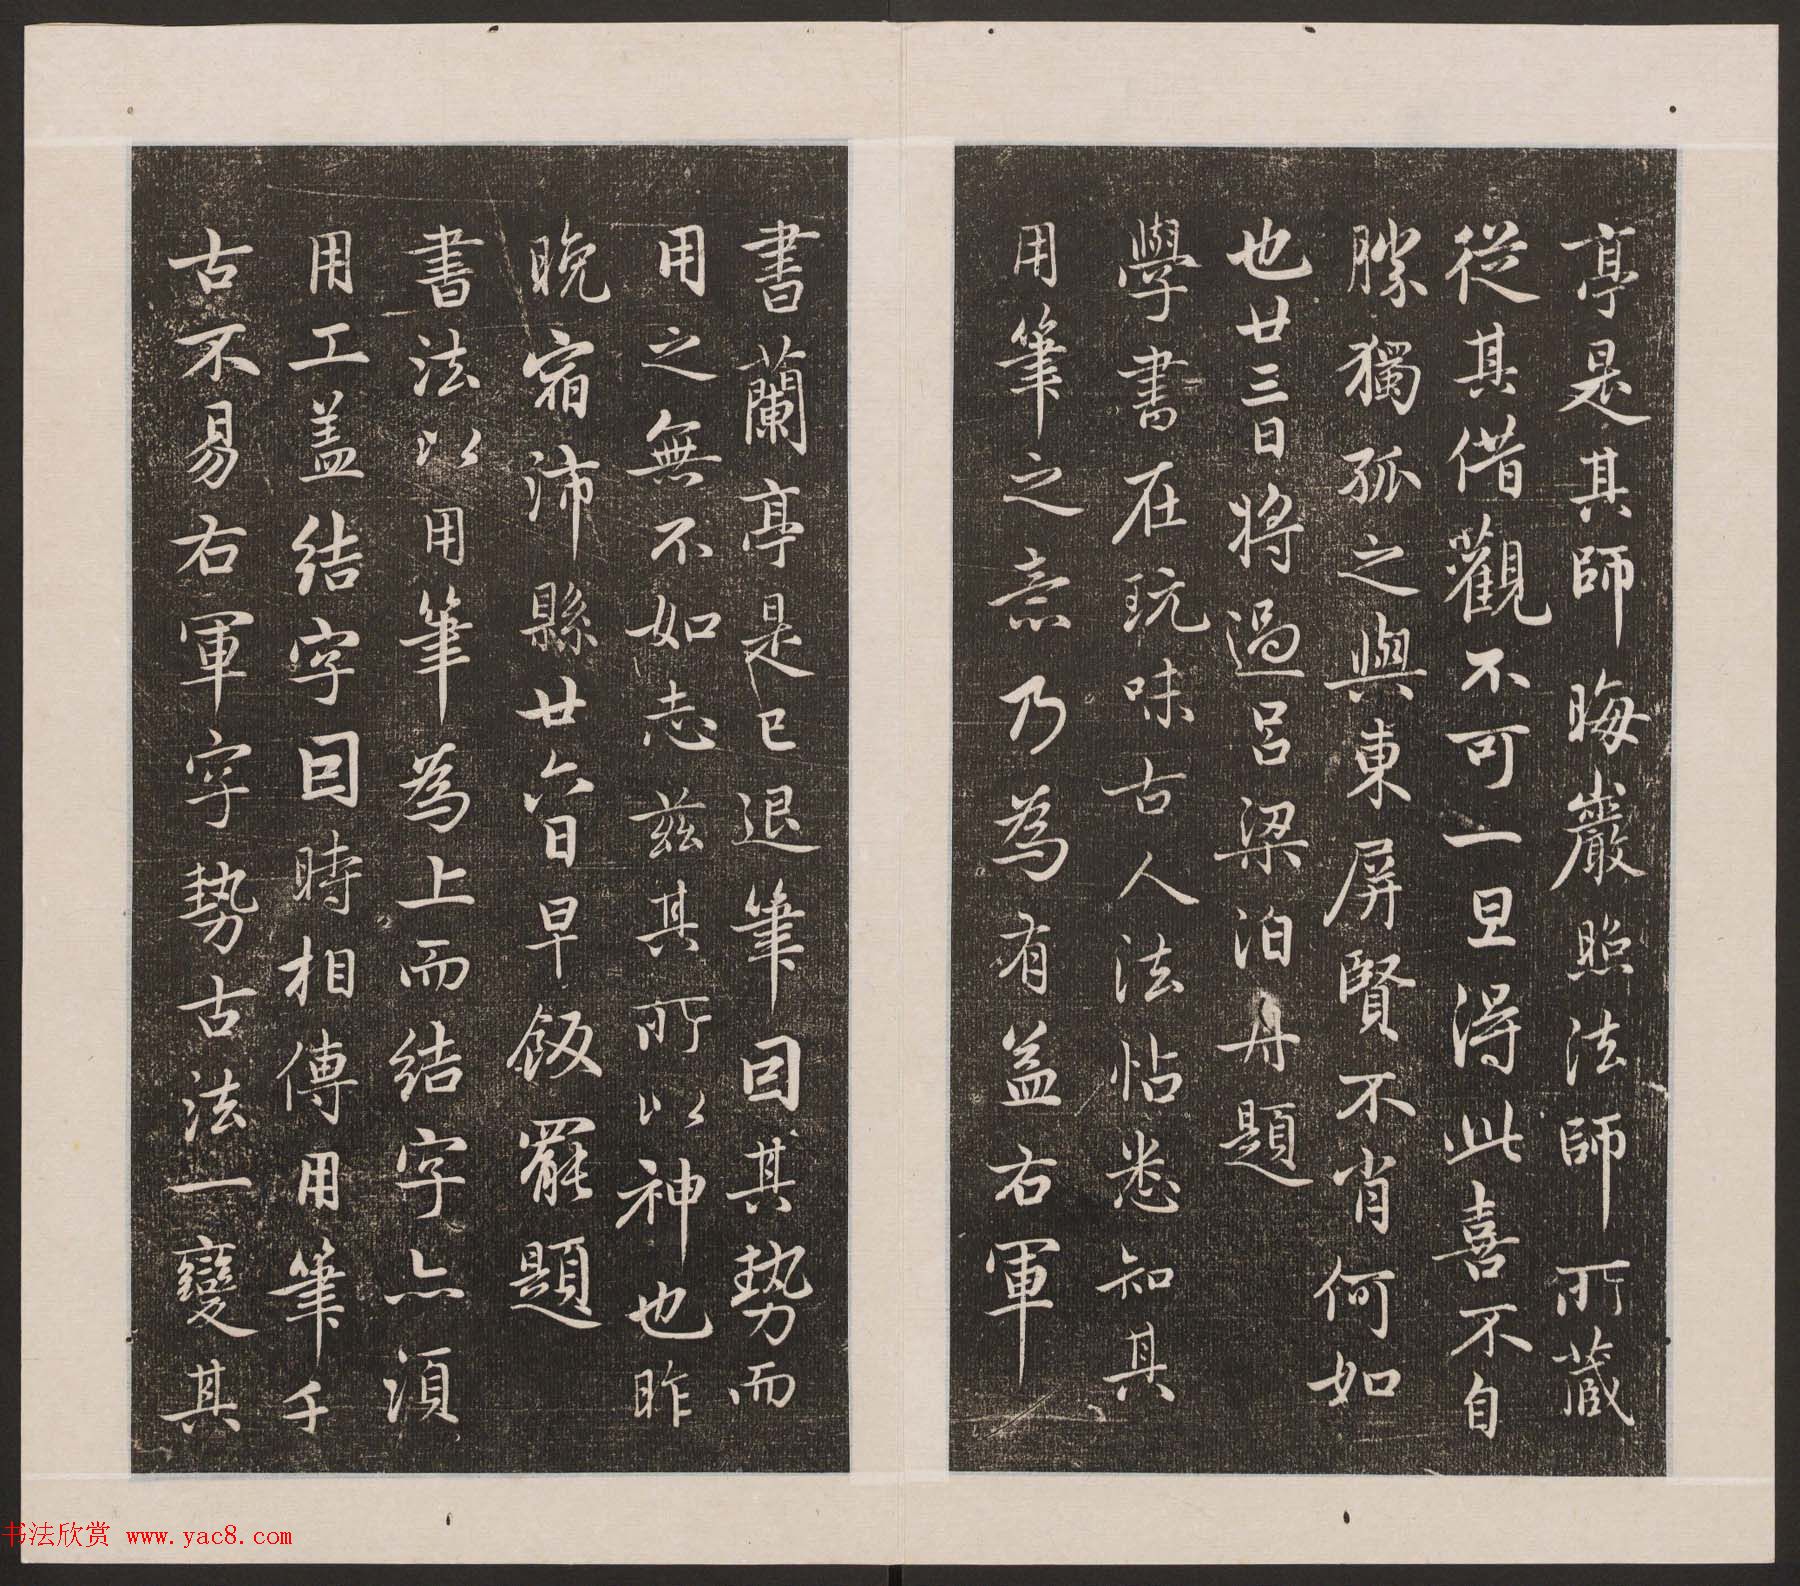 亭是其師晦巖照法師所藏
從其借觀不可一旦得此喜不自
勝獨孤之與東屏賢不肖何如
也廿三日將過呂梁泊舟題
學書在玩味古人法帖悉知其
用筆之意乃為有益右軍
書蘭亭是已退筆因其勢而
用之無不如志茲其所以神也昨
晚宿沛縣廿六日早飯罷題
書法以用筆為上而結字亦須
用工蓋結字因時相傳用筆千
古不易右軍字勢古法一變其
书法欣赏 www.yac8.com